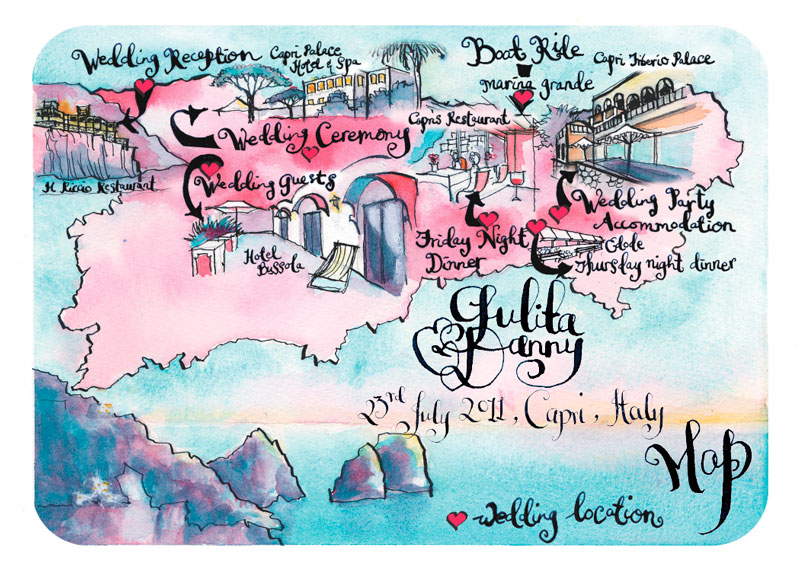 Wedding Reception
Capri Palace
Hotel & Spa
Boat Ride
marina grande
Capri Tiberio Palace
Wedding Ceremony
Capris Restaurant
Il Riccio Restaurant
Wedding Guests
Hotel
Bussola
Friday Night
Dinner
Wedding Party
Accommodation
Glode
Thursday night dinner
Julita
& Danny
23rd July 2011, Capri, Italy
Map
wedding location